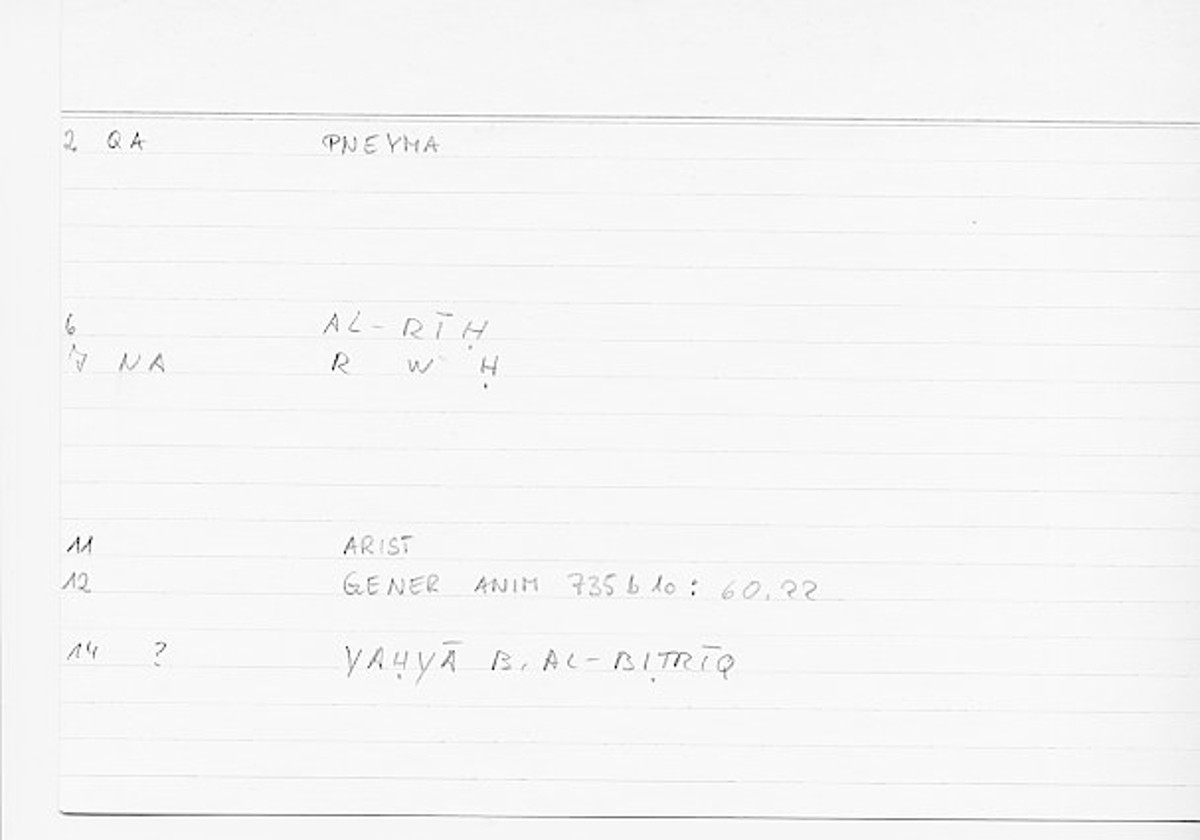 2 QA PNEYMA
6 AL-RĪḤ
7 NA R W Ḥ
11 ARIST
12 GENER ANIM 735 b 10 : 60.22
14 ? YAḤYĀ B. AL-BIṬRĪQ